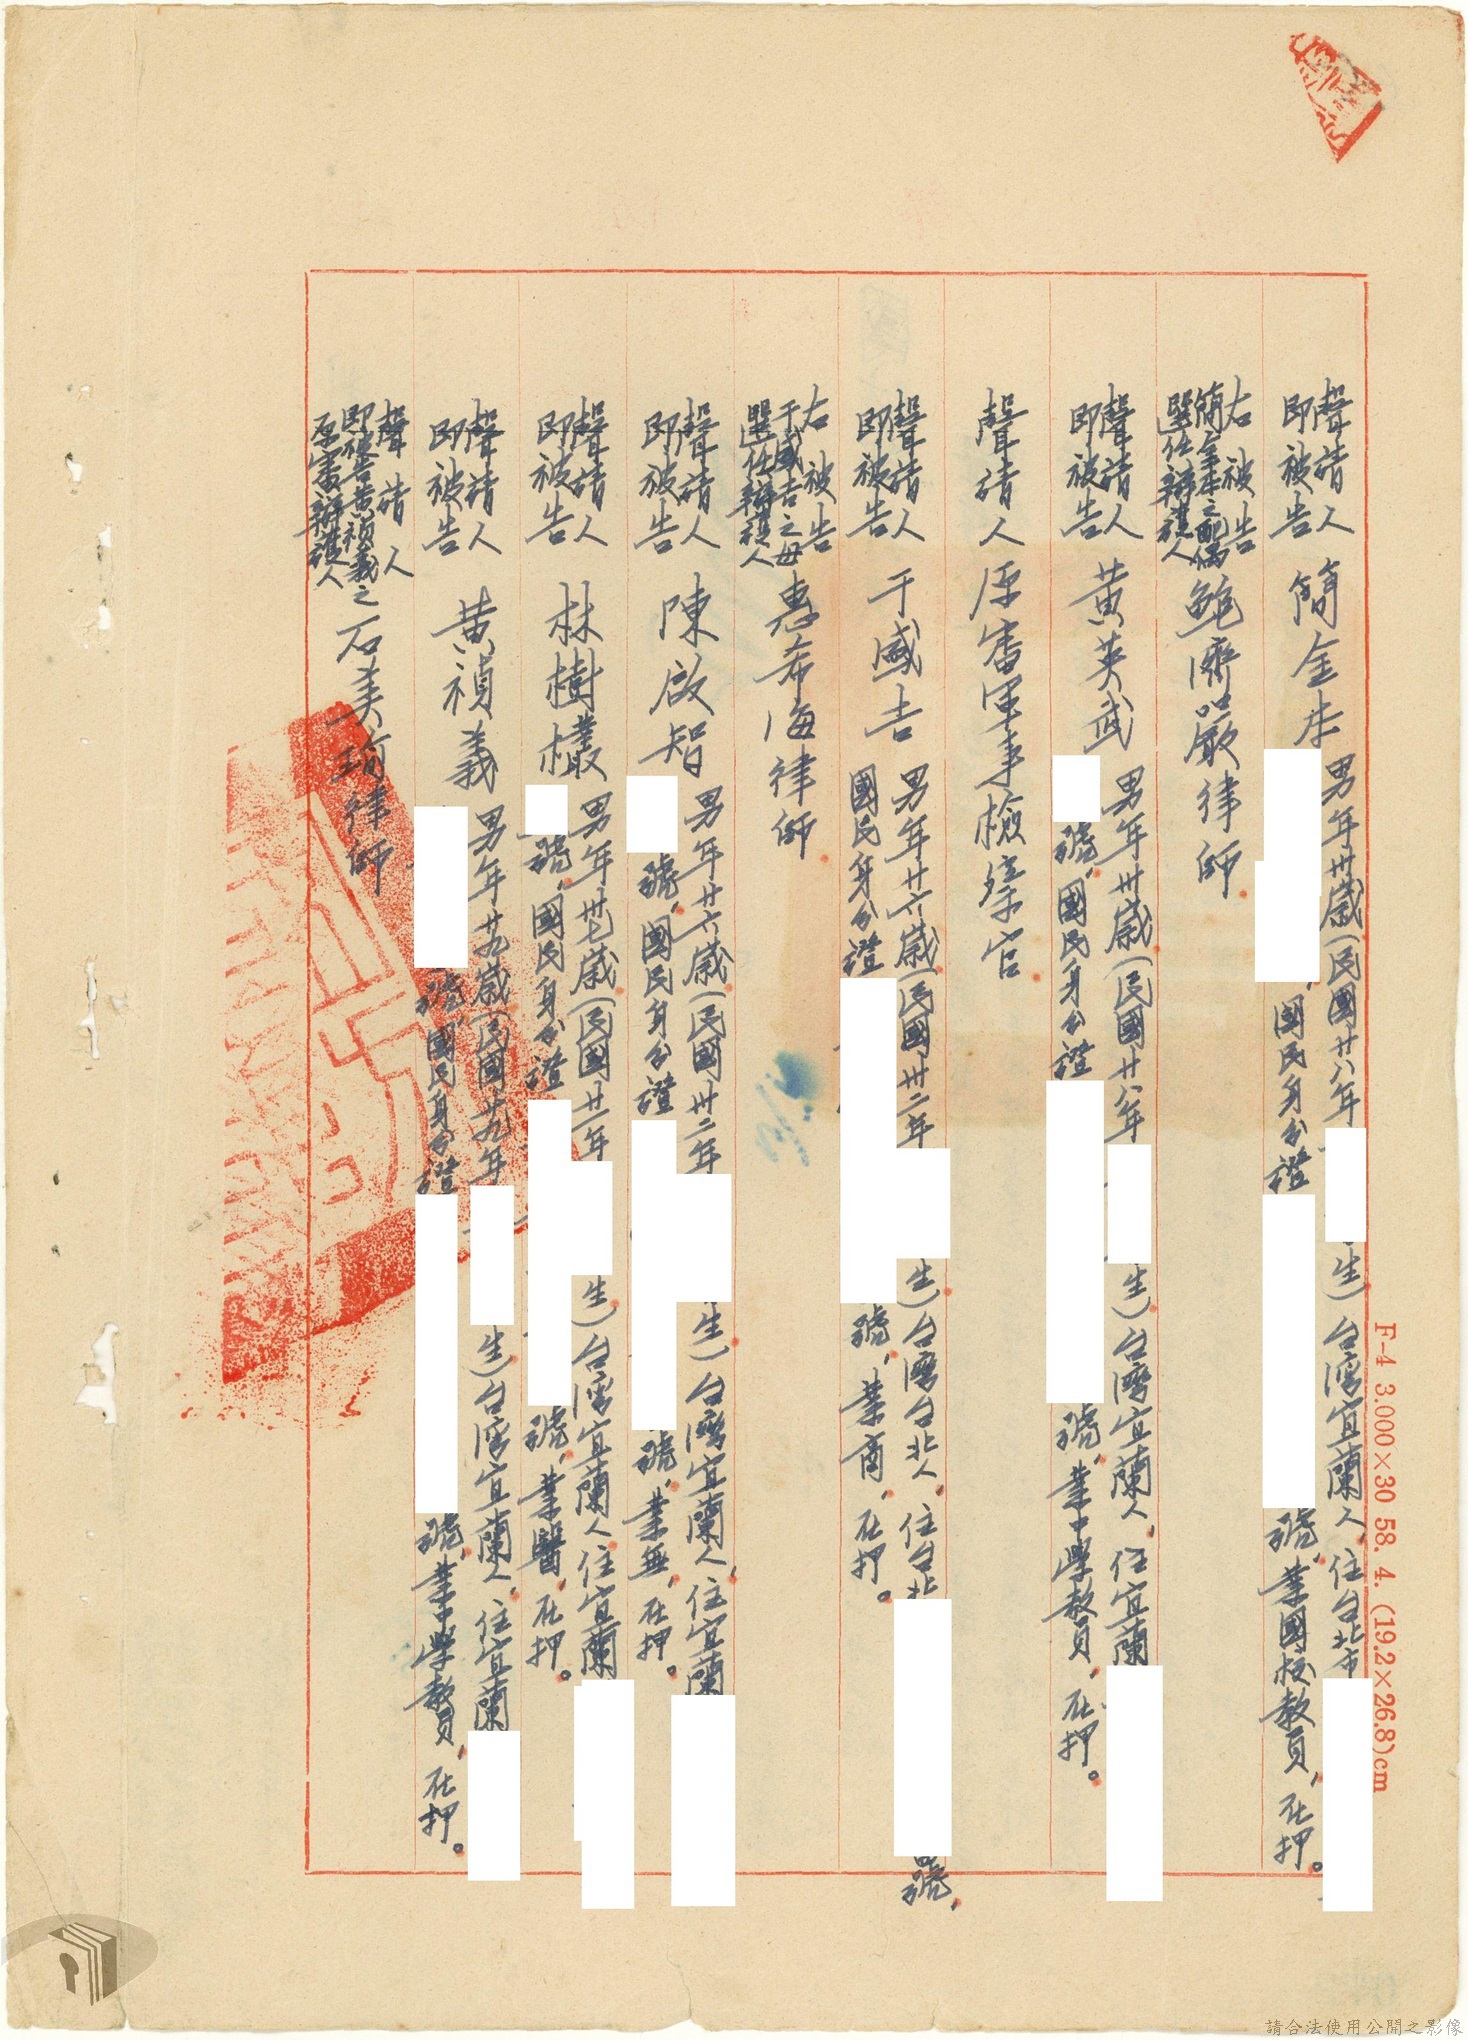 聲請人
即被告
簡金本
男年卅歲(民國廿八年
生)台灣宜蘭人,住台北市
,國民身份證
號,業國校教員,在押。
右被告
簡金本之配偶
選任辯護人
鮑濟嚴律師
聲請人
即被告
黃英武
男年卅歲(民國廿八年
生)台灣宜蘭人,住宜蘭
號,國民身份證
號,業中學教員,在押。
聲請人 原審軍事檢察官
聲請人
即被告
于威吉
男年廿六歲(民國卅二年
生)台灣台北人,住台北
號,
國民身份證
號,業商,在押。
右被告
于威吉之母
選任辯護人
惠希海律師
聲請人
即被告
陳啟智
男年廿六歲(民國卅二年
生)台灣宜蘭人,住宜蘭
號,國民身份證
號,業無,在押。
聲請人
即被告
林樹欉
男年卅七歲(民國廿一年
生)台灣宜蘭人住宜蘭
號,國民身份證
號,業醫,在押。
聲請人
即被告
黃禎義
男年廿九歲(民國廿九年
生)台灣宜蘭人,住宜蘭
號,國民身份證
號,業中學教員,在押。
聲請人
即被告黃禎義之
原審辯護人
石美瑜律師
F-4 3.000×30 58.4.(19.2×26.8)cm
請合法使用公開之影像